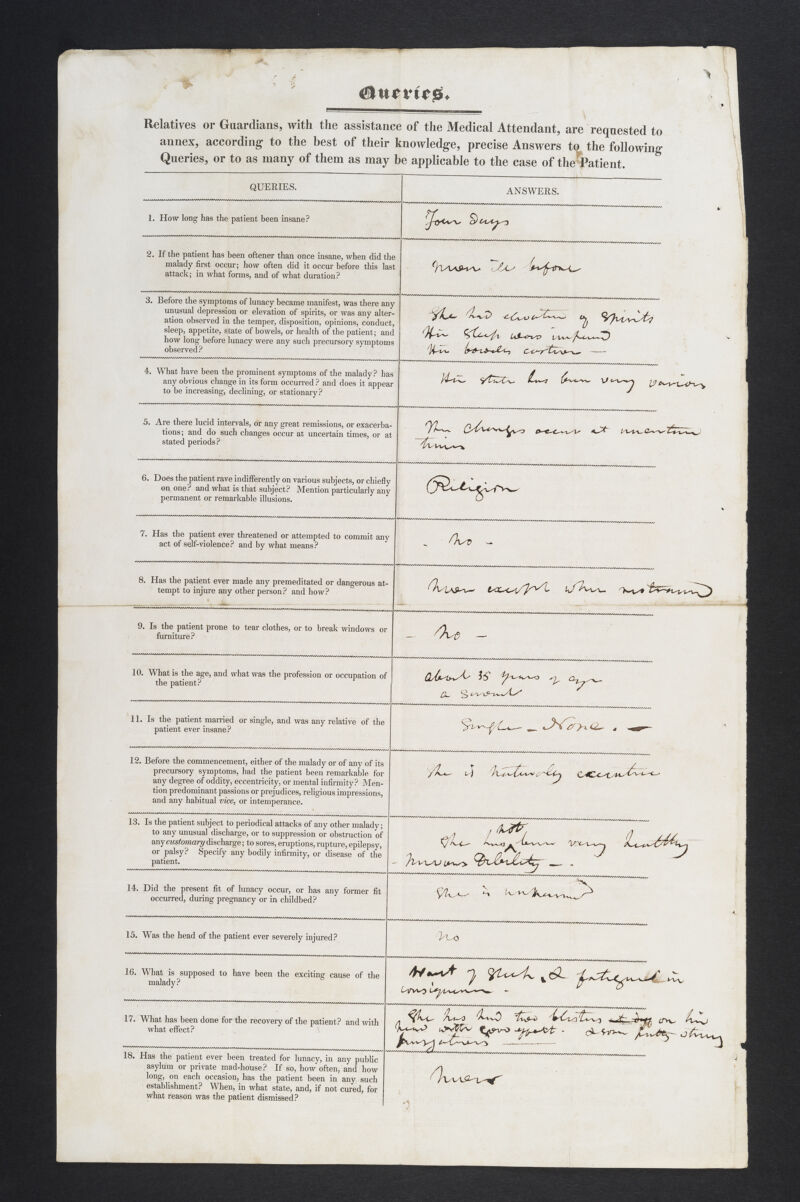 Queries.
Relatives or Guardians, with the assistance of the Medical Attendant, are requested to
annex, according to the best of their knowledge, precise Answers to the following
Queries, or to as many of them as may be applicable to the case of the Patient.
QUERIES.
ANSWERS.
1. How long has the patient been insane?
Four Days
2. If the patient has been oftener than once insane, when did the
malady first occur; how often did it occur before this last
attack; in what forms, and of what duration?
never ill before
3. Before the symptoms of lunacy became manifest, was there any
unusual depression or elevation of spirits, or was any alter-
ation observed in the temper, disposition, opinions, conduct,
sleep, appetite, state of bowels, or health of the patient; and
how long before lunacy were any such precursory symptoms
observed?
She had elevation of Spirits
Her Sleep was impaired
Her bowels costive —
4. What have been the prominent symptoms of the malady? has
any obvious change in its form occurred? and does it appear
to be increasing, declining, or stationary?
Her state has been very various
5. Are there lucid intervals, or any great remissions, or exacerba-
tions; and do such changes occur at uncertain times, or at
stated periods?
The Changes occur at uncertain
times
6. Does the patient rave indifferently on various subjects, or chiefly
on one? and what is that subject? Mention particularly any
permanent or remarkable illusions.
Religion
7. Has the patient ever threatened or attempted to commit any
act of self-violence? and by what means?
- No -
8. Has the patient ever made any premeditated or dangerous at-
tempt to injure any other person? and how?
Never except when restrained
9. Is the patient prone to tear clothes, or to break windows or
furniture?
- No -
10. What is the age, and what was the profession or occupation of
the patient?
about 35 years of age
a Servant
11. Is the patient married or single, and was any relative of the
patient ever insane?
Single - None. -
12. Before the commencement, either of the malady or of any of its
precursory symptoms, had the patient been remarkable for
any degree of oddity, eccentricity, or mental infirmity? Men-
tion predominant passions or prejudices, religious impressions,
and any habitual vice, or intemperance.
She is naturally eccentric
13. Is the patient subject to periodical attacks of any other malady;
to any unusual discharge, or to suppression or obstruction of
any customary discharge; to sores, eruptions, rupture, epilepsy,
or palsy? Specify any bodily infirmity, or disease of the
patient.
She has not been very healthy
- Nervous Debility - .
14. Did the present fit of lunacy occur, or has any former fit
occurred, during pregnancy or in childbed?
She is unmarried
15. Was the head of the patient ever severely injured?
No
16. What is supposed to have been the exciting cause of the
malady?
Want of Sleep, & fatigued in
consequence -
17. What has been done for the recovery of the patient? and with
what effect?
She has had two blisters on her
head with good effect. & some pretty strong
purgatives
18. Has the patient ever been treated for lunacy, in any public
asylum or private mad-house? If so, how often, and how
long, on each occasion, has the patient been in any such
establishment? When, in what state, and, if not cured, for
what reason was the patient dismissed?
Never